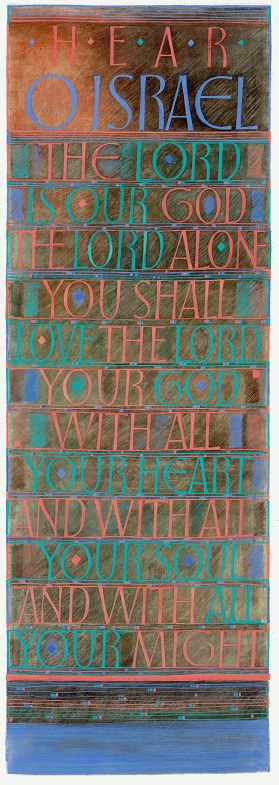 HEAR
O ISRAEL
THE LORD
IS OUR GOD
THE LORD ALONE
YOU SHALL
LOVE THE LORD
YOUR GOD
WITH ALL
YOUR HEART
AND WITH ALL
YOUR SOUL
AND WITH ALL
YOUR MIGHT